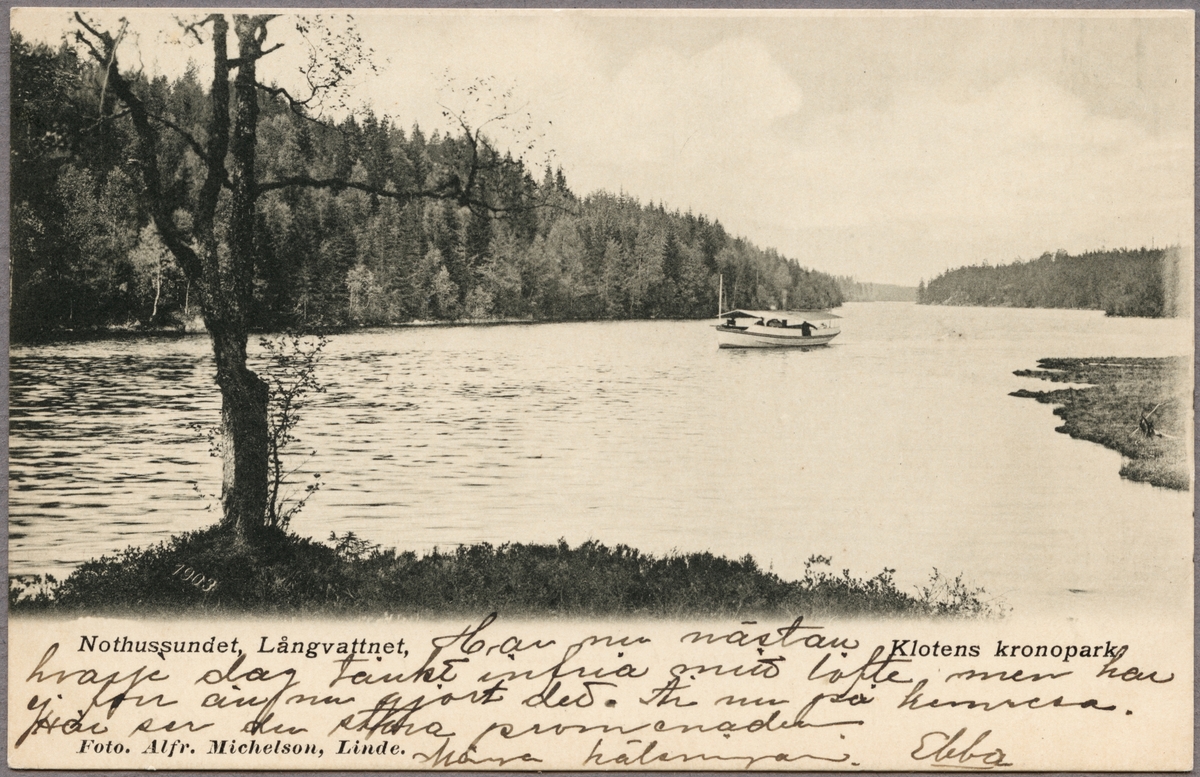 1903
Nothussundet, Långvattnet, Klotens kronopark
Har nu nästan
hvarje dag tänkt infria mitt löfte, men har
ej förr än nu gjort det. Är nu på hemresa.
Här ser du stora promenaden
Foto. Alfr. Michelson, Linde.
Många hälsningar. Ebba